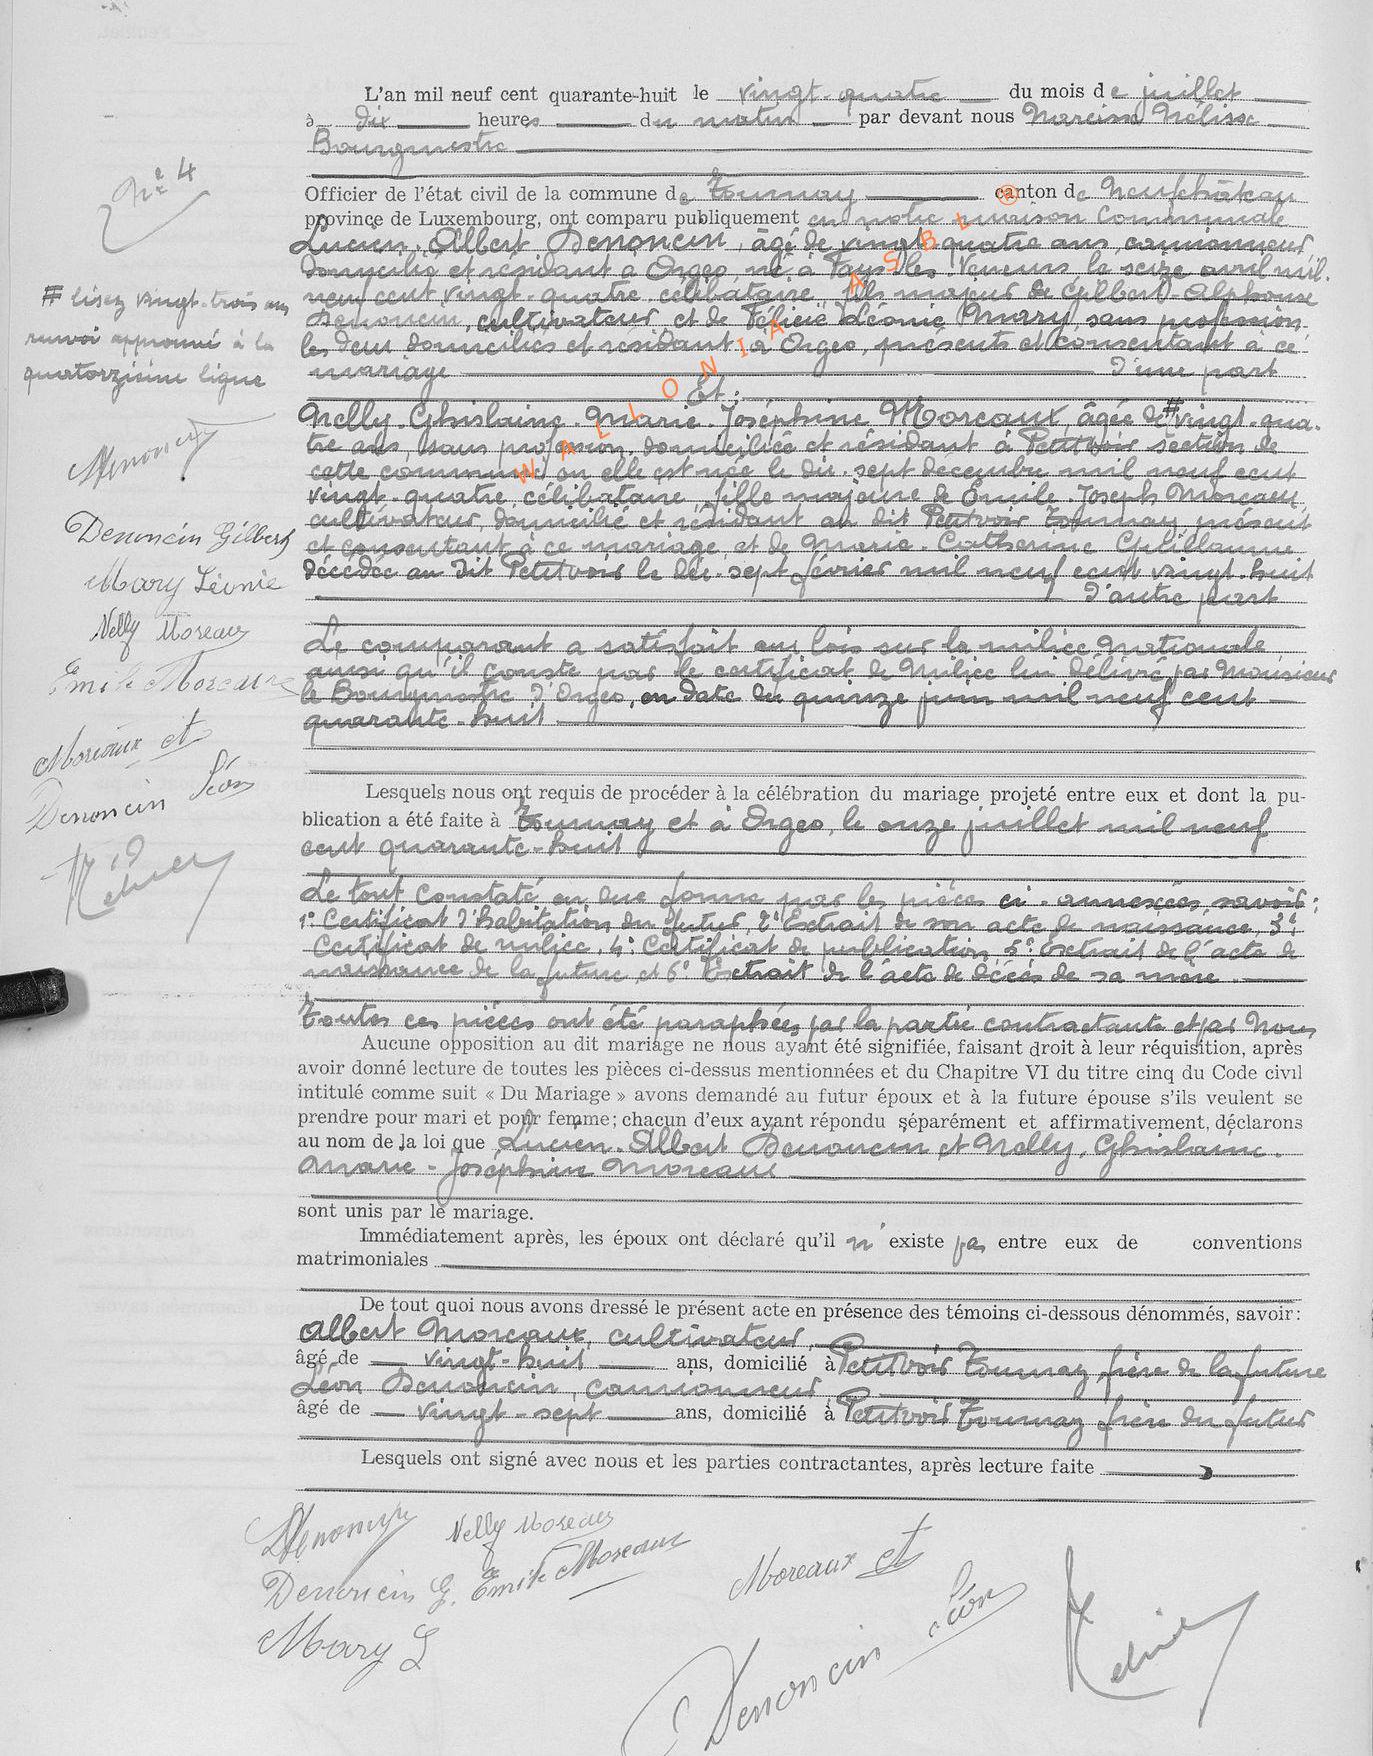 L'an mil neuf cent quarante-huit le vingt-quatre du mois de juillet
à dix heures du matin par devant nous Narcisse Nélisse
Bourgmestre
N° 4
Officier de l'état civil de la commune de Tournay canton de Neufchâteau
province de Luxembourg, ont comparu publiquement en notre maison communale
Lucien-Albert Denoncin, âgé de vingt-quatre ans, camionneur,
domicilié et résidant à Orgeo, né à Faus-les-Veneurs le seize avril mil-
neuf cent vingt-quatre, célibataire, fils majeur de Gilbert-Alphonse
Denoncin, cultivateur et de Félicie Léonie Mary, sans profession
les deux domiciliés et résidant à Orgeo, présents et consentant à ce
mariage d'une part
Et:
# lisez vingt-trois ans
renvoi approuvé à la
quatorzième ligne
Nelly-Ghislaine-Marie-Joséphine Moreaux, âgée de # vingt-qua-
tre ans, sans profession, domiciliée et résidant à Petitvoir section de
cette commune où elle est née le dix-sept décembre mil neuf cent
vingt-quatre, célibataire, fille majeure de Emile-Joseph Moreaux,
cultivateur, domicilié et résidant au dit Petitvoir Tournay, présent
et consentant à ce mariage, et de Marie-Catherine Guillaume
décédée au dit Petitvoir le dix-sept février mil neuf cent vingt-huit
d'autre part
Denoncin
Denoncin Gilbert
Mary Léonie
Nelly Moreaux
Emile Moreaux
Moreaux
Denoncin Léon
Le comparant a satisfait aux lois sur la milice nationale
ainsi qu'il conste par le certificat de milice lui délivré par Monsieur
le Bourgmestre d'Orgeo, en date du quinze juin mil neuf cent
quarante-huit
Lesquels nous ont requis de procéder à la célébration du mariage projeté entre eux et dont la pu-
blication a été faite à Tournay et à Orgeo, le onze juillet mil neuf
cent quarante-huit
Le tout constaté en due forme par les pièces ci-annexées savoir:
1° Certificat d'habitation du futur, 2° Extrait de son acte de naissance, 3°
Certificat de milice, 4° Certificat de publication, 5° Extrait de l'acte de
naissance de la future, et 6° Extrait de l'acte de décès de sa mère.
Toutes ces pièces ont été paraphées par la partie contractante et par Nous
Aucune opposition au dit mariage ne nous ayant été signifiée, faisant droit à leur réquisition, après
avoir donné lecture de toutes les pièces ci-dessus mentionnées et du Chapitre VI du titre cinq du Code civil
intitulé comme suit « Du Mariage » avons demandé au futur époux et à la future épouse s'ils veulent se
prendre pour mari et pour femme; chacun d'eux ayant répondu séparément et affirmativement, déclarons
au nom de la loi que Lucien-Albert Denoncin et Nelly, Ghislaine-
Marie-Joséphine Moreaux
sont unis par le mariage.
Immédiatement après, les époux ont déclaré qu'il n' existe pas entre eux de conventions
matrimoniales
De tout quoi nous avons dressé le présent acte en présence des témoins ci-dessous dénommés, savoir:
Albert Moreaux, cultivateur,
âgé de vingt-huit ans, domicilié à Petitvoir Tournay, frère de la future
Léon Denoncin, camionneur,
âgé de vingt-sept ans, domicilié à Petitvoir Tournay frère du futur
Lesquels ont signé avec nous et les parties contractantes, après lecture faite
Denoncin Nelly Moreaux
Denoncin G. Emile Moreaux
Mary L
Moreaux
Denoncin Léon
WALLONIA ASBL ®